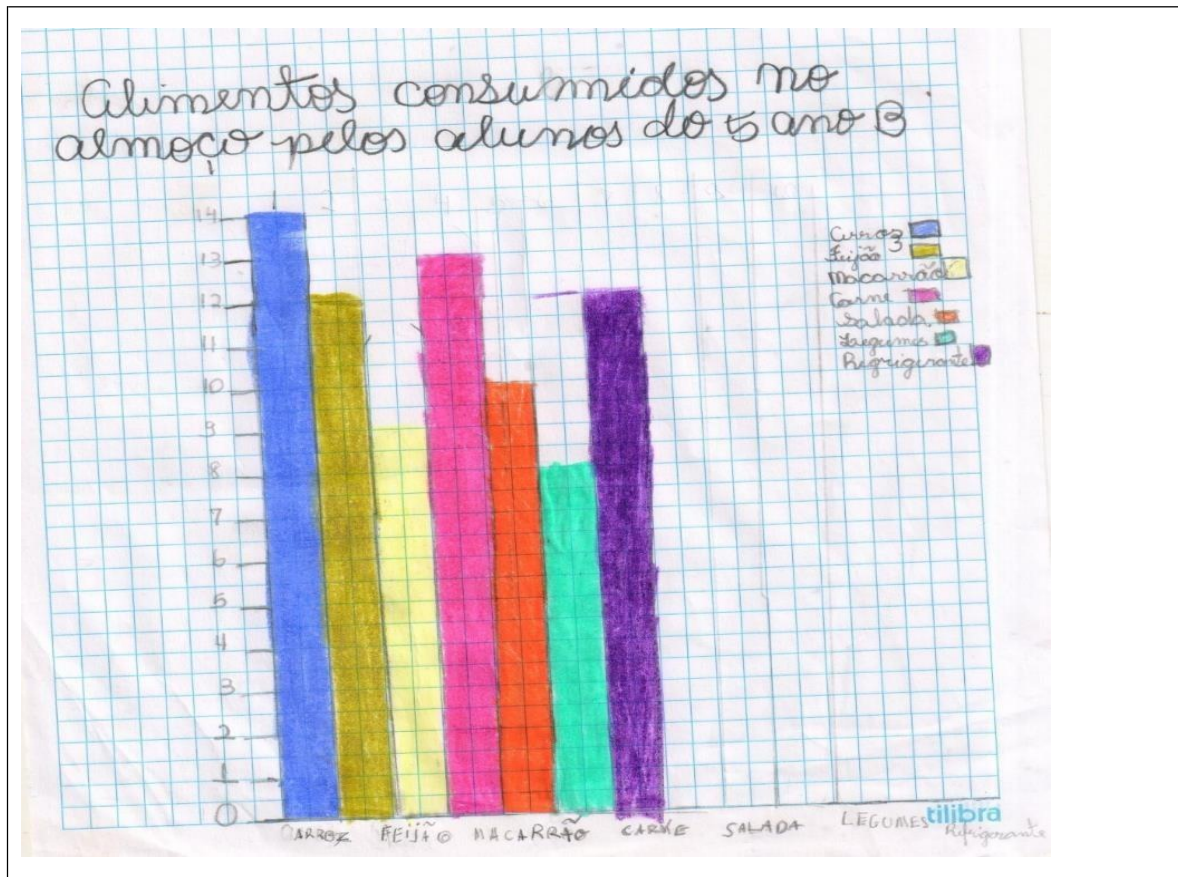 Alimentos consumidos no
almoço pelos alunos do 5 ano B
14
13
12
11
10
9
8
7
6
5
4
3
2
1
0
Arroz
Feijão
Macarrão
Carne
Salada
Legumes
Refrigerante
ARROZ FEIJÃO MACARRÃO CARNE SALADA LEGUMES tilibra
Refrigerante